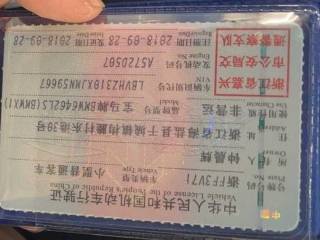 中华人民共和国机动车行驶证
Vehicle License of the People's Republic of China
号牌号码 浙FF3V71 车辆类型 小型普通客车
Plate No. Vehicle Type
所有人 钟晨辉
Owner
住址 浙江省海盐县于城镇 39号
Address
使用性质 非营运 品牌型号 宝马牌BMW6462LS(BMWX1)
Use Character Model
浙江省嘉兴
市公安局交
通警察支队
车辆识别代号 LBVHZ310XJMN59667
VIN
发动机号码 A572D507
Engine No.
注册日期 2018-09-28 发证日期 2018-09-28
Register Date Issue Date